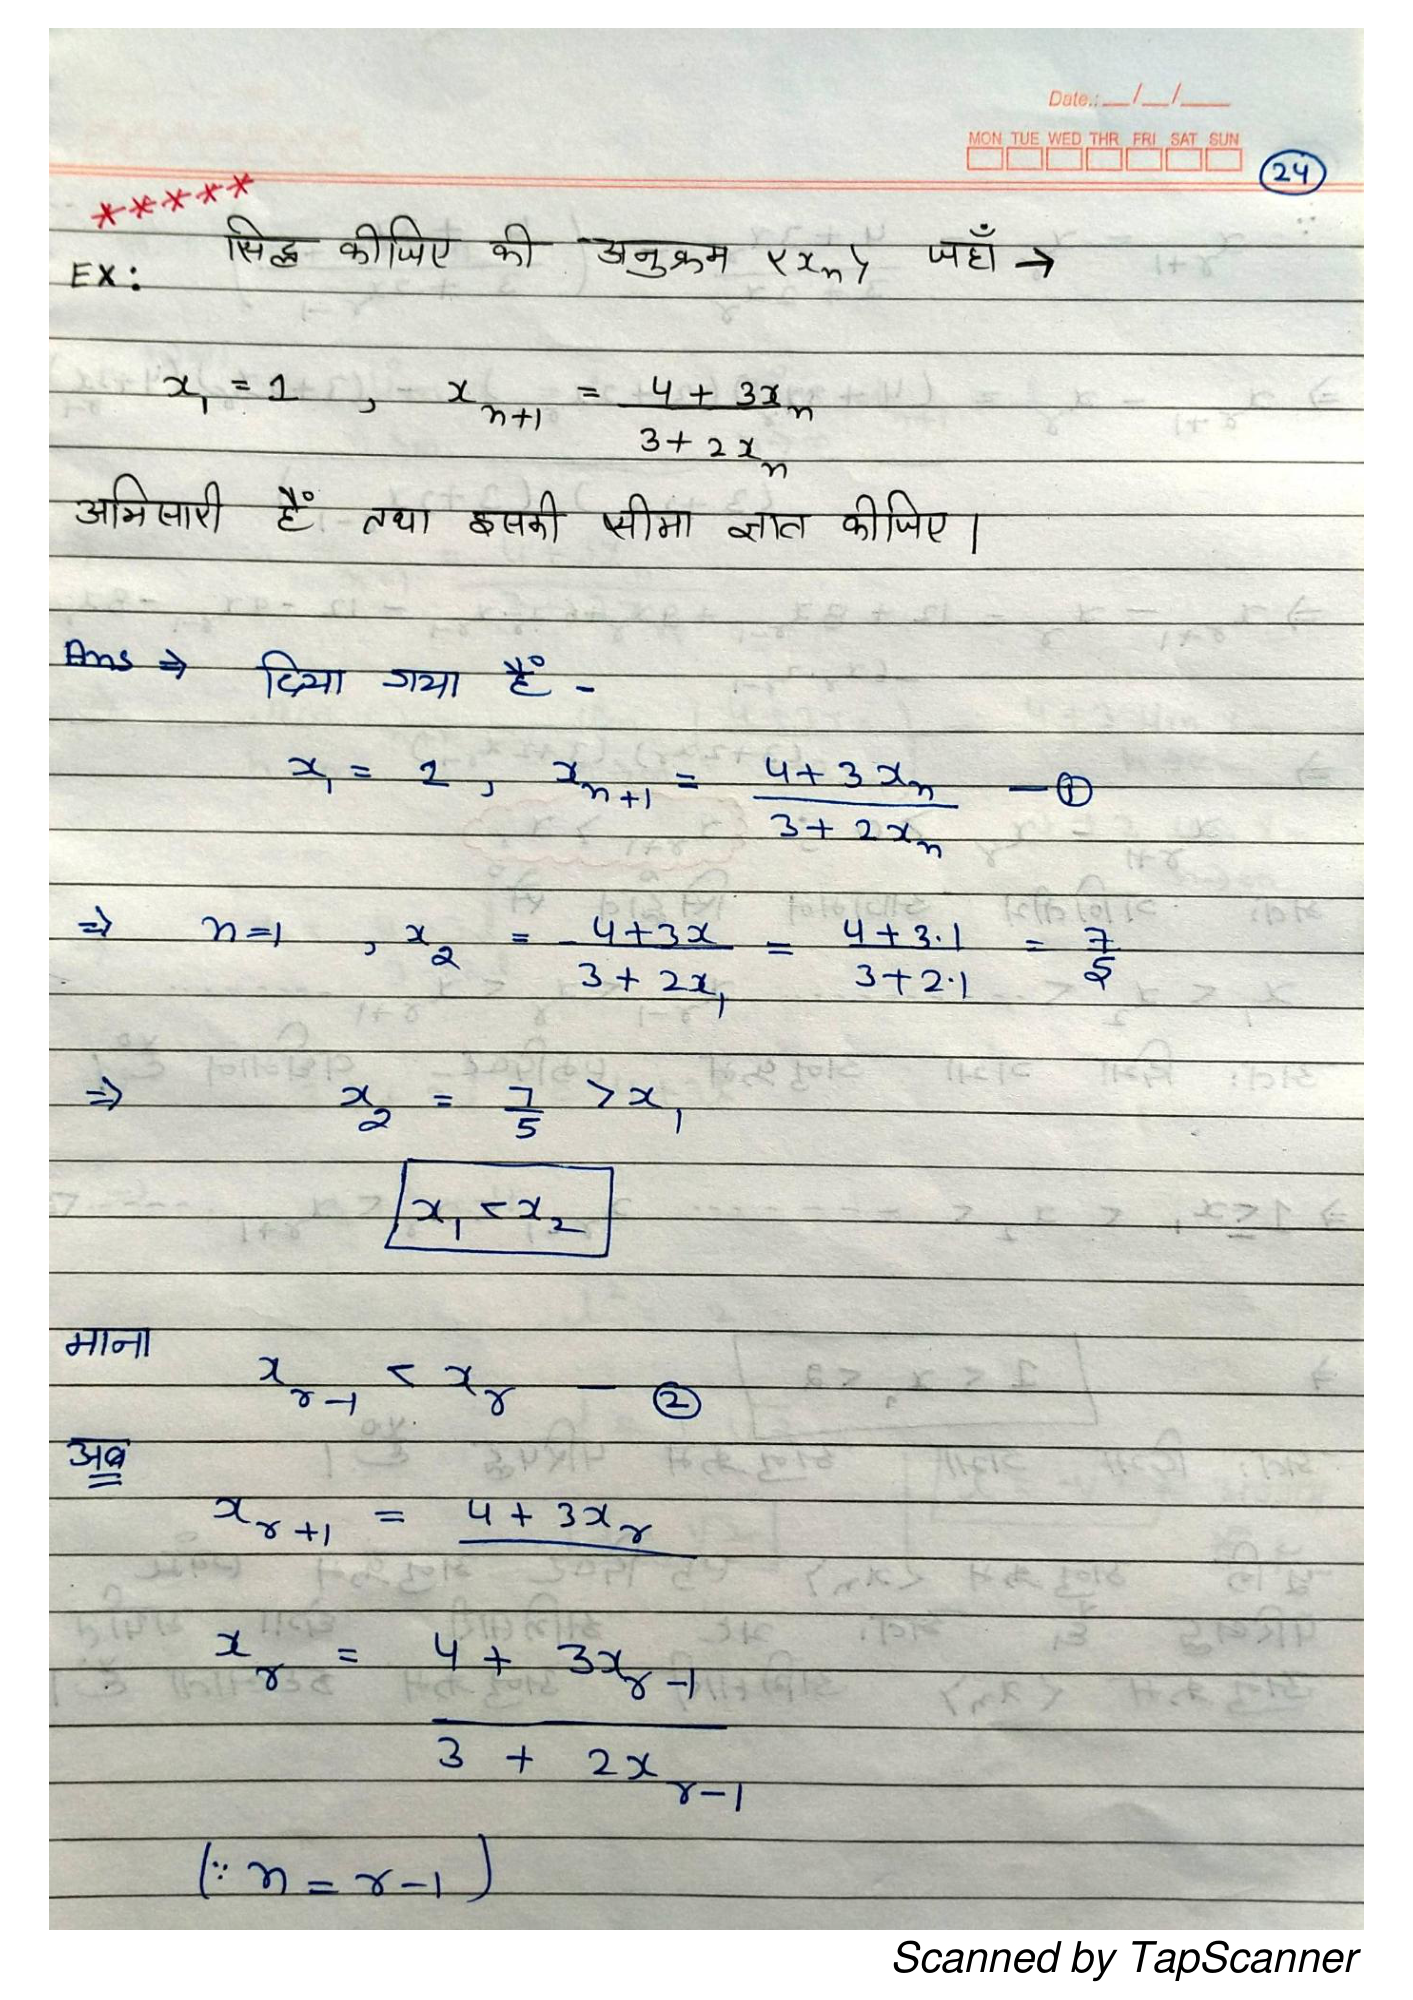 Date.: __/__/___
MON TUE WED THR FRI SAT SUN
24
*****
EX: सिद्ध कीजिए की अनुक्रम <xₙ> जहाँ →
x₁ = 1 , xₙ₊₁ = (4 + 3xₙ)/(3 + 2xₙ)
अभिसारी हैं तथा इसकी सीमा ज्ञात कीजिए।
Ans ⇒ दिया गया हैं -
x₁ = 1 , xₙ₊₁ = (4 + 3xₙ)/(3 + 2xₙ) — ①
⇒ n=1 , x₂ = (4+3x)/(3+2x₁) = (4+3·1)/(3+2·1) = 7/5
⇒ x₂ = 7/5 > x₁
x₁ < x₂
माना
x_{r-1} < x_r — ②
अब
x_{r+1} = 4 + 3x_r
x_r = (4 + 3x_{r-1})/(3 + 2x_{r-1})
(∵ n = r-1)
Scanned by TapScanner